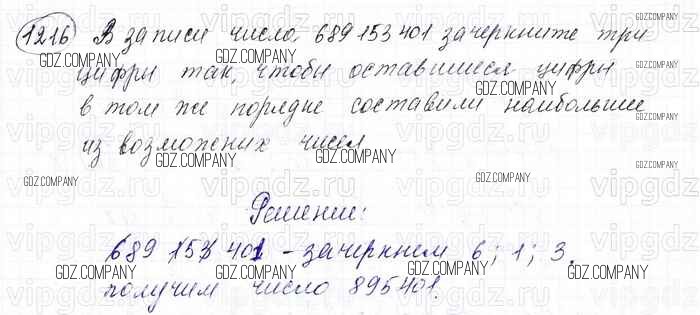 1216 В записи числа 689 153 401 зачеркните три
цифры так, чтобы оставшиеся цифры
в том же порядке составили наибольшее
из возможных чисел
Решение:
689 153 401 - зачеркнем 6; 1; 3.
получим число 895401.
GDZ.COMPANY
GDZ.COMPANY
GDZ.COMPANY
GDZ.COMPANY
GDZ.COMPANY
GDZ.COMPANY
GDZ.COMPANY
GDZ.COMPANY
GDZ.COMPANY
GDZ.COMPANY
GDZ.COMPANY
GDZ.COMPANY
GDZ.COMPANY
vipgdz.ru
vipgdz.ru
vipgdz.ru
vipgdz.ru